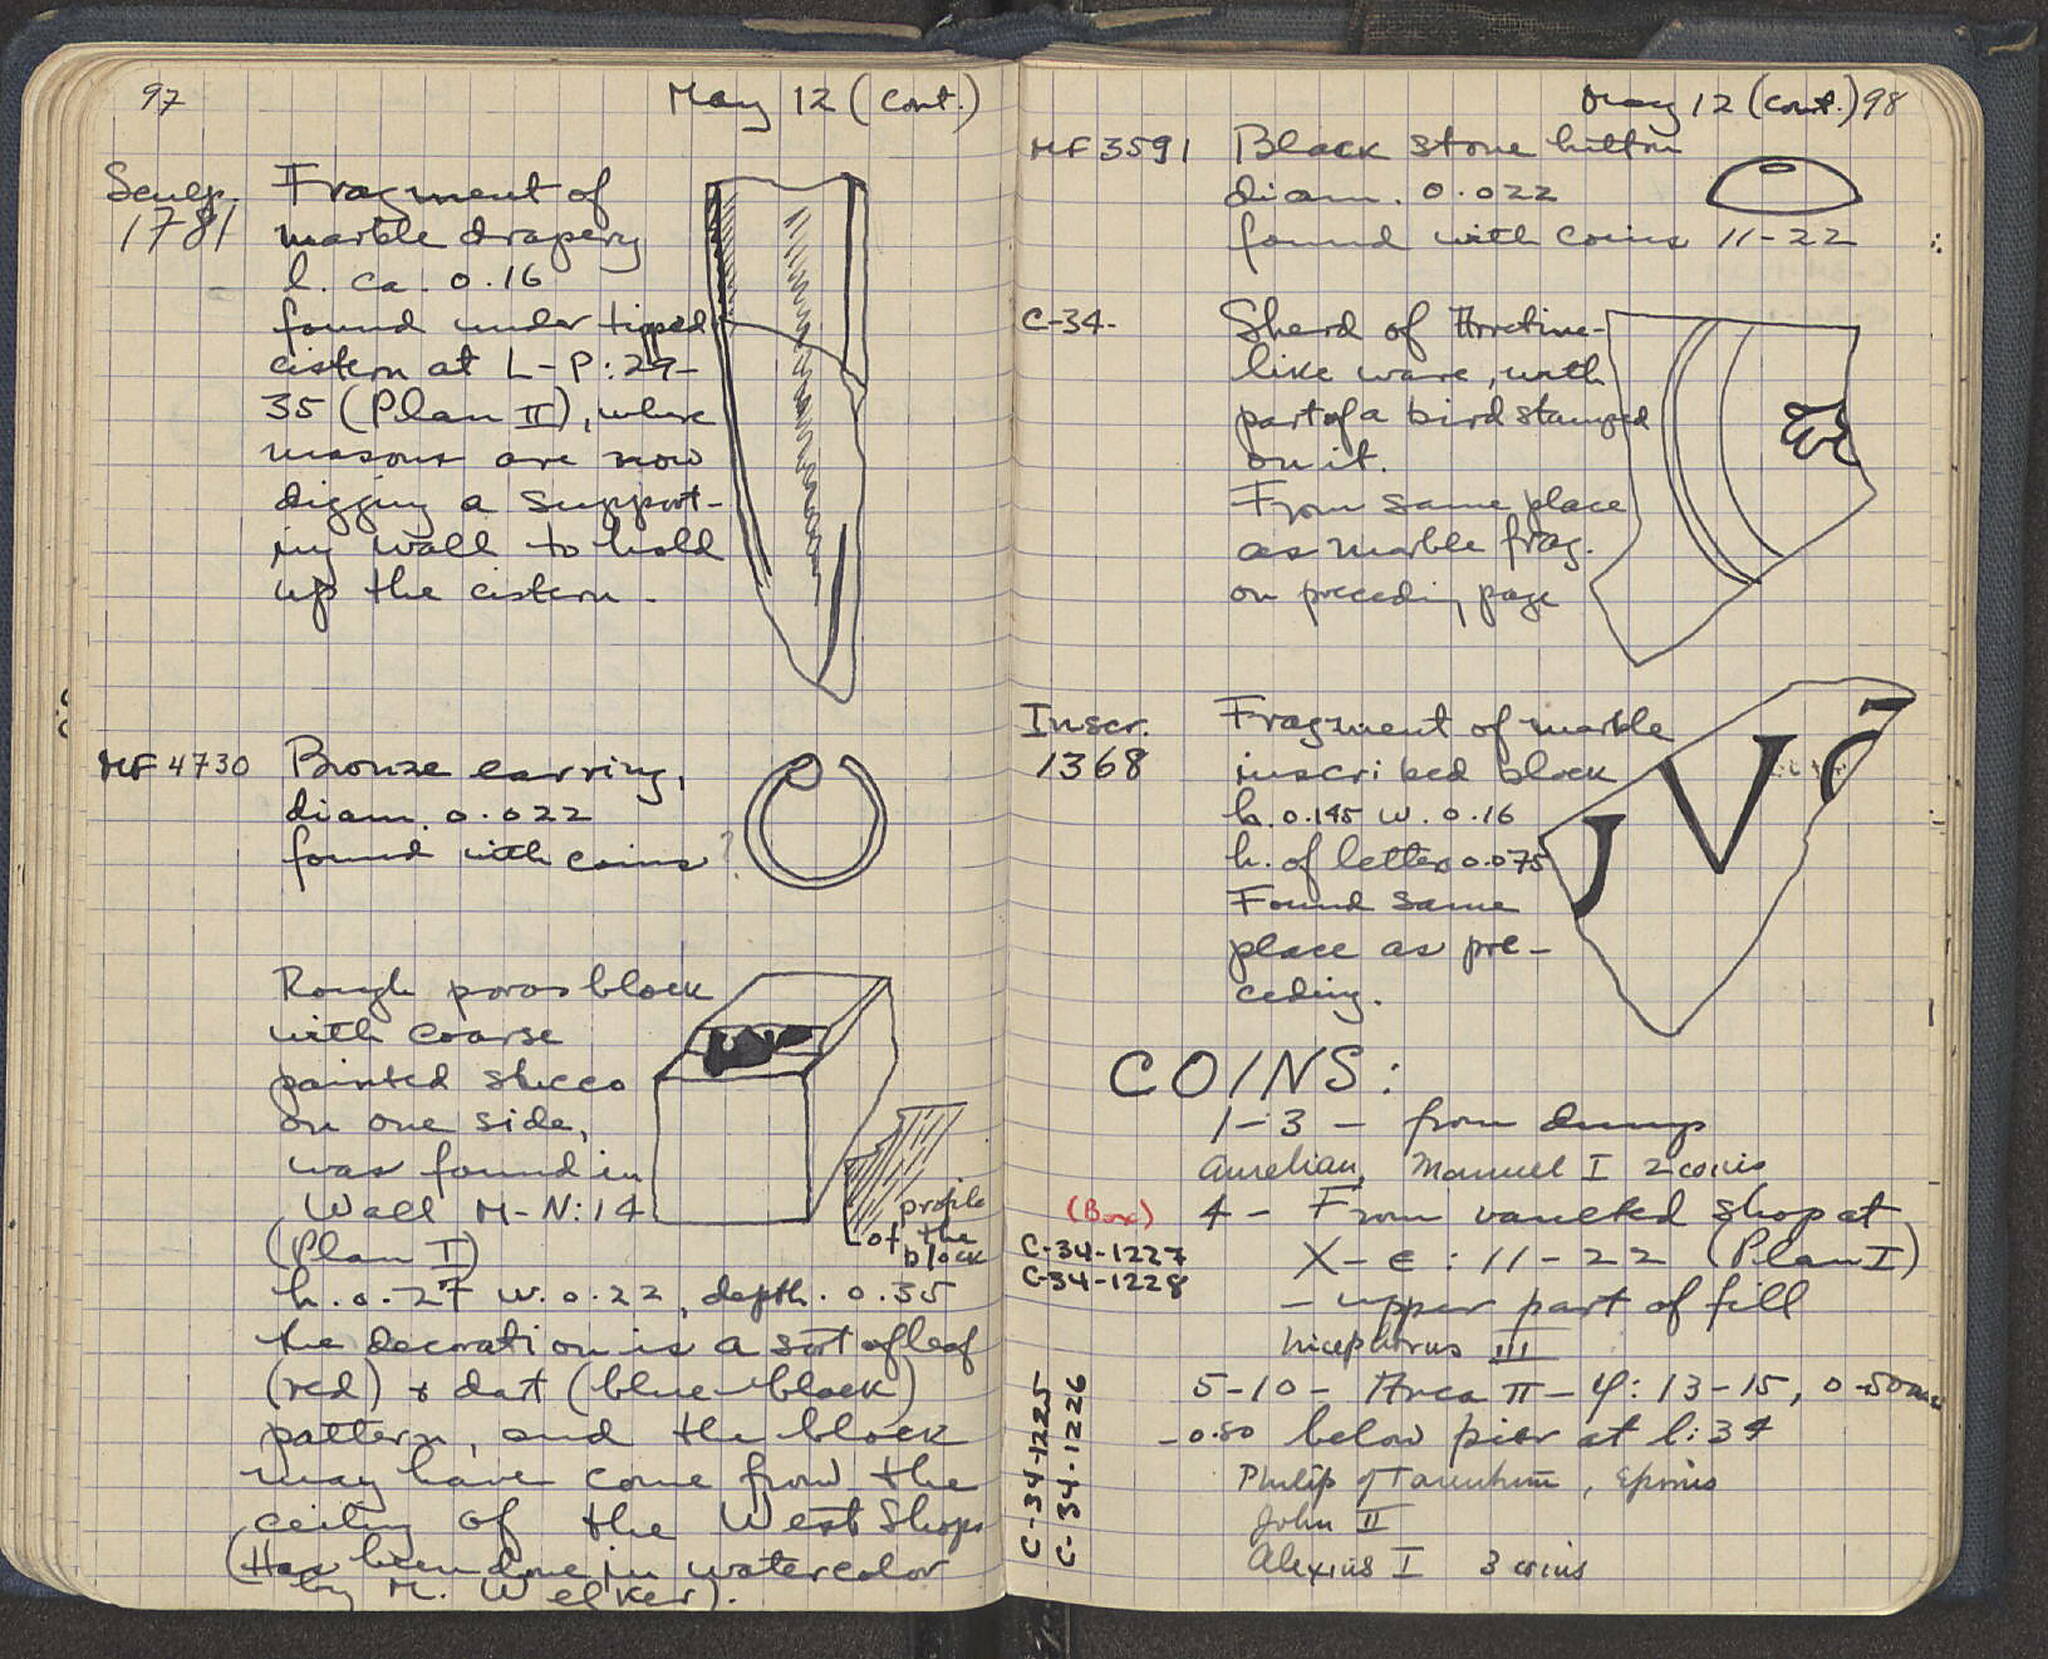 97
May 12 (Cont.)
Sculp.
1781
Fragment of
marble drapery
l. ca. 0.16
found under tipped
cistern at L-P:29-
35 (Plan II), where
masons are now
digging a support-
ing wall to hold
up the cistern.
MF 4730
Bronze earring,
diam. 0.022
found with coins ?
Rough poros block
with coarse
painted stucco
on one side,
was found in
Wall M-N:14
(Plan I)
profile
of the
block
h. 0.27 w. 0.22, depth. 0.35
the decoration is a sort of leaf
(red) & dot (blue-black)
pattern, and the block
may have come from the
ceiling of the West Shops
(Has been done in watercolor
by M. Welker).
May 12 (Cont.) 98
MF 3591
Black stone button
diam. 0.022
found with coins 11-22
C-34-
Sherd of Arretine-
like ware, with
part of a bird stamped
on it.
From same place
as marble frag.
on preceding page
Inscr.
1368
Fragment of marble
inscribed block
h. 0.145 w. 0.16
h. of letters 0.075
Found same
place as pre-
ceding.
V
COINS:
1-3 - from dump
Aurelian, Manuel I 2 coins
(Box)
4 - From vaulted shop at
C-34-1227
C-34-1228
X-E: 11-22 (Plan I)
- upper part of fill
Nicephorus III
C-34-1225
C-34-1226
5-10 - Area π-φ: 13-15, 0.50m
-0.80 below pier at l:34
Philip of Tarentum, Epirus
John II
Alexius I 3 coins